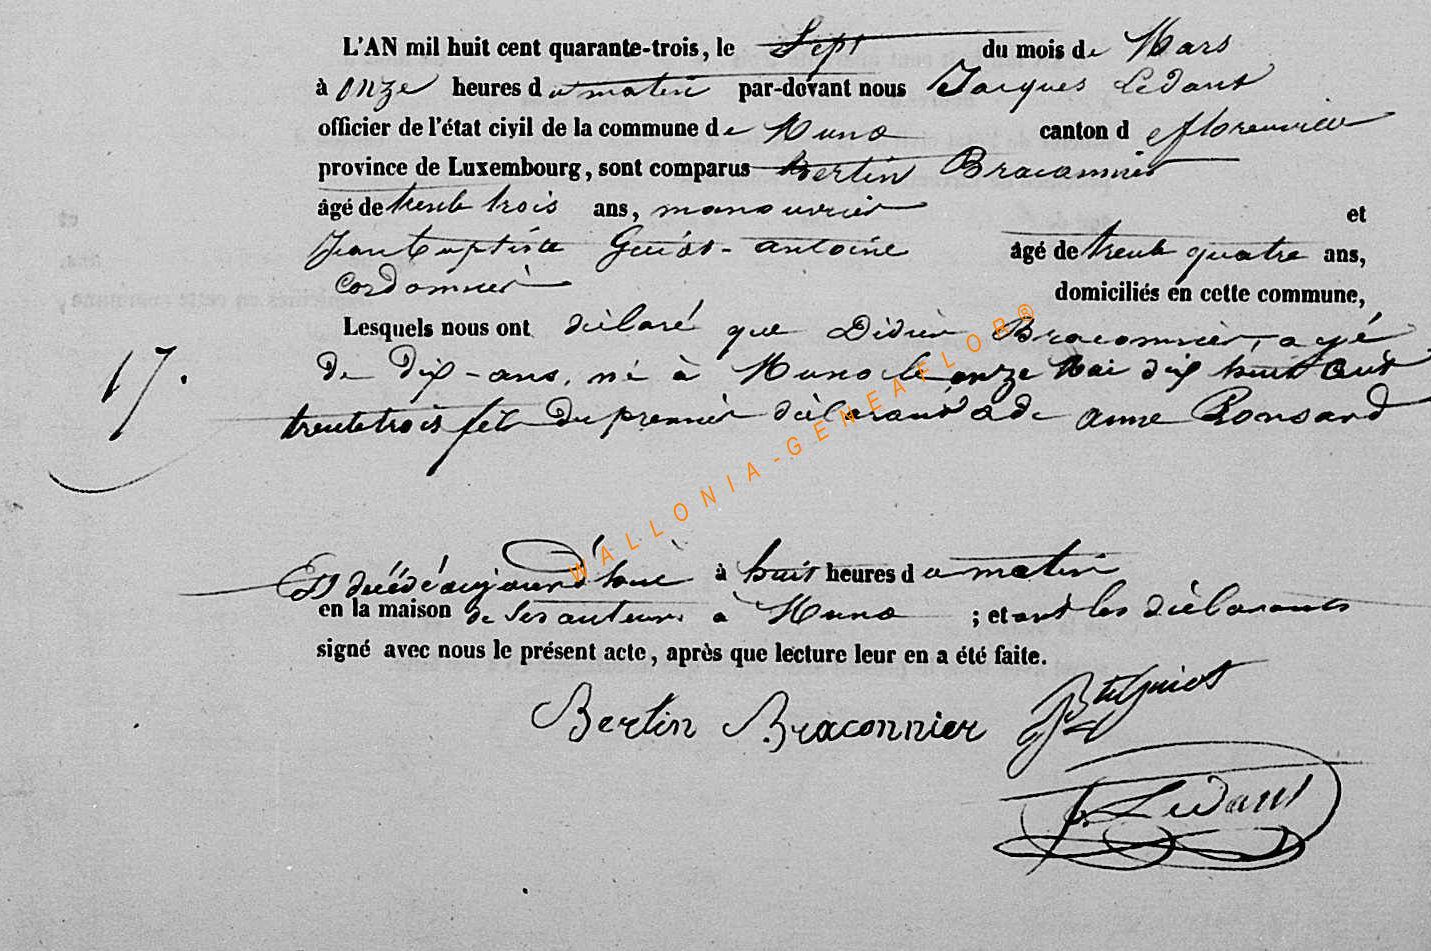 L'AN mil huit cent quarante-trois, le Sept du mois de Mars
à onze heures du matin par-devant nous Jacques Ledant
officier de l'état civil de la commune de Muno canton de florenville
province de Luxembourg, sont comparus Bertin Braconnier
âgé de trente trois ans, manouvrier et
Jean Baptiste Guiot-antoine âgé de trente quatre ans,
Cordonnier domiciliés en cette commune,
Lesquels nous ont déclaré que Didier Braconnier, agé
de Dix-ans, né à Muno le onze Mai dix huit Cent
trente trois fils du premier déclarant & de anne Ronsard
17.
Est décédé aujourd'hui à huit heures du matin
en la maison de ses auteurs à Muno ; et ont les déclarants
signé avec nous le présent acte, après que lecture leur en a été faite.
Bertin Braconnier JBte Guiot
J. Ledant
WALLONIA-GENEAFLOR®